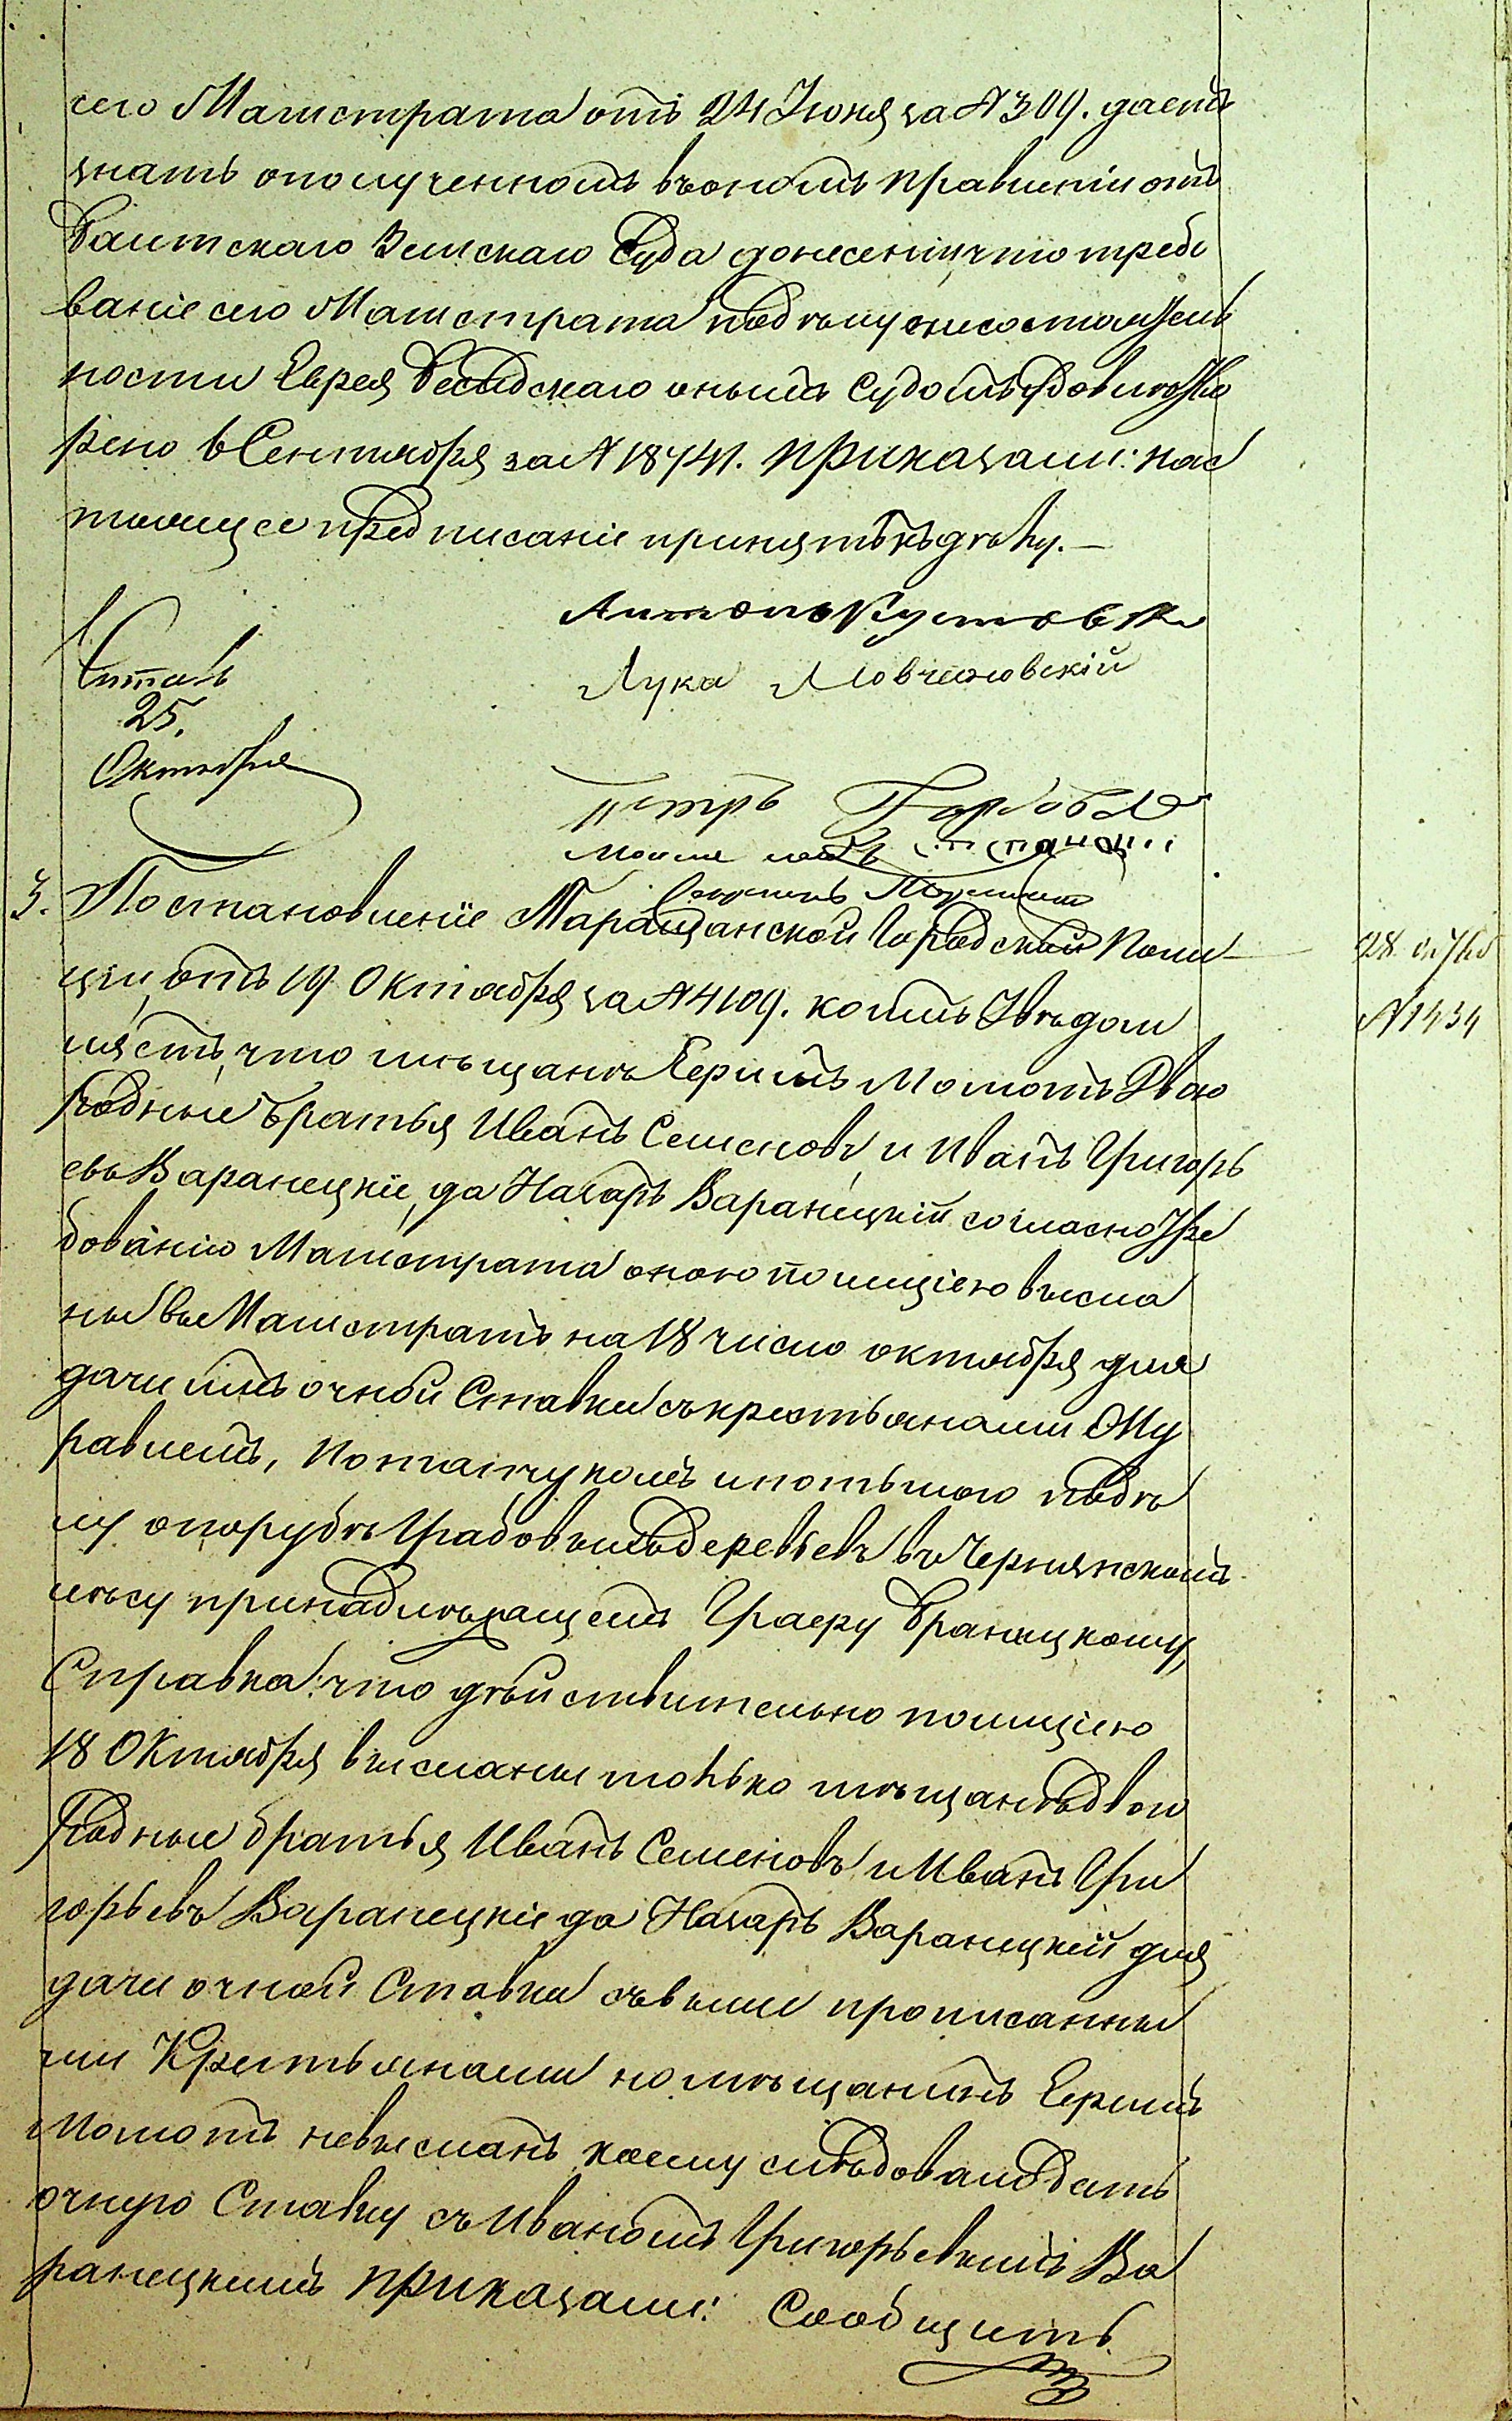 сего Магистрата отъ 24 Июня за № 309. даетъ
знать ополученномъ въономъ правленіи отъ
Балтскаго Земскаго Суда донесеніи, что требо
ваніе сего Магистрата по дѣлу онесостоятель
ности Еврея Бесидскаго онымъ Судомъ удовлетво
рено 6 Сентября за № 18741. Приказали: нас
тоящее предписаніе принять къ дѣлу. —
Антонъ Кустовскі
Лука Мовчановскій
Читалъ
25.
Октября
Петръ Горбовъ
3. Постановленіе Таращанской Городской Поли
ціи, отъ 19 Октября за № 4109. коимъ Увѣдом
ляетъ, что мѣщанѣ Еримъ Момотъ Двою
родные братья Иванъ Семеновъ, и Иванъ Григорь
евъ Варанецкіе, да Назаръ Варанецкій согласно тре
бованію Магистрата оною полиціею высла
ны въ Магистратъ на 18 число октября для
дачи имъ очной Ставки съкрестьянами
равлемъ, Потапчукомъ ипотомою по дѣ
лу опорубкѣ Грабовыхъ деревьевъ въ Чернянскомъ
лѣсу принадлежащемъ Графу Браницкому,
Справка: что дѣйствительно полиціею
18 Октября высланы только мѣщанѣ двою
родные братья Иванъ Семеновъ и Иванъ Гри
горьевъ Варанецкіе да Назаръ Варанецкій для
дачи очной Ставки съвыше прописанны
ми Крестьянами но мѣщанинъ Еримъ
Момотъ невысланъ, коему слѣдовало дать
очную Ставку съ Иваномъ Григорьевымъ Ва
ранецкимъ Приказали: Сообщить
28 октяб
№ 1434